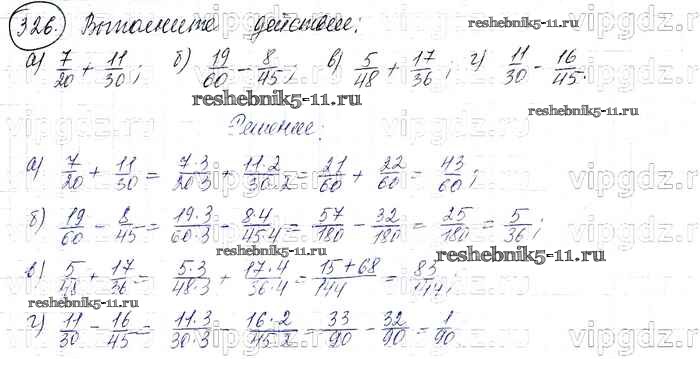 326. Выполните действие:
а) 7/20 + 11/30; б) 19/60 - 8/45; в) 5/48 + 17/36; г) 11/30 - 16/45.
reshebnik5-11.ru
reshebnik5-11.ru
Решение:
а) 7/20 + 11/30 = 7·3/20·3 + 11·2/30·2 = 21/60 + 22/60 = 43/60;
б) 19/60 - 8/45 = 19·3/60·3 - 8·4/45·4 = 57/180 - 32/180 = 25/180 = 5/36;
reshebnik5-11.ru
reshebnik5-11.ru
в) 5/48 + 17/36 = 5·3/48·3 + 17·4/36·4 = 15+68/144 = 83/144;
reshebnik5-11.ru
г) 11/30 - 16/45 = 11·3/30·3 - 16·2/45·2 = 33/90 - 32/90 = 1/90
reshebnik5-11.ru
vipgdz.ru